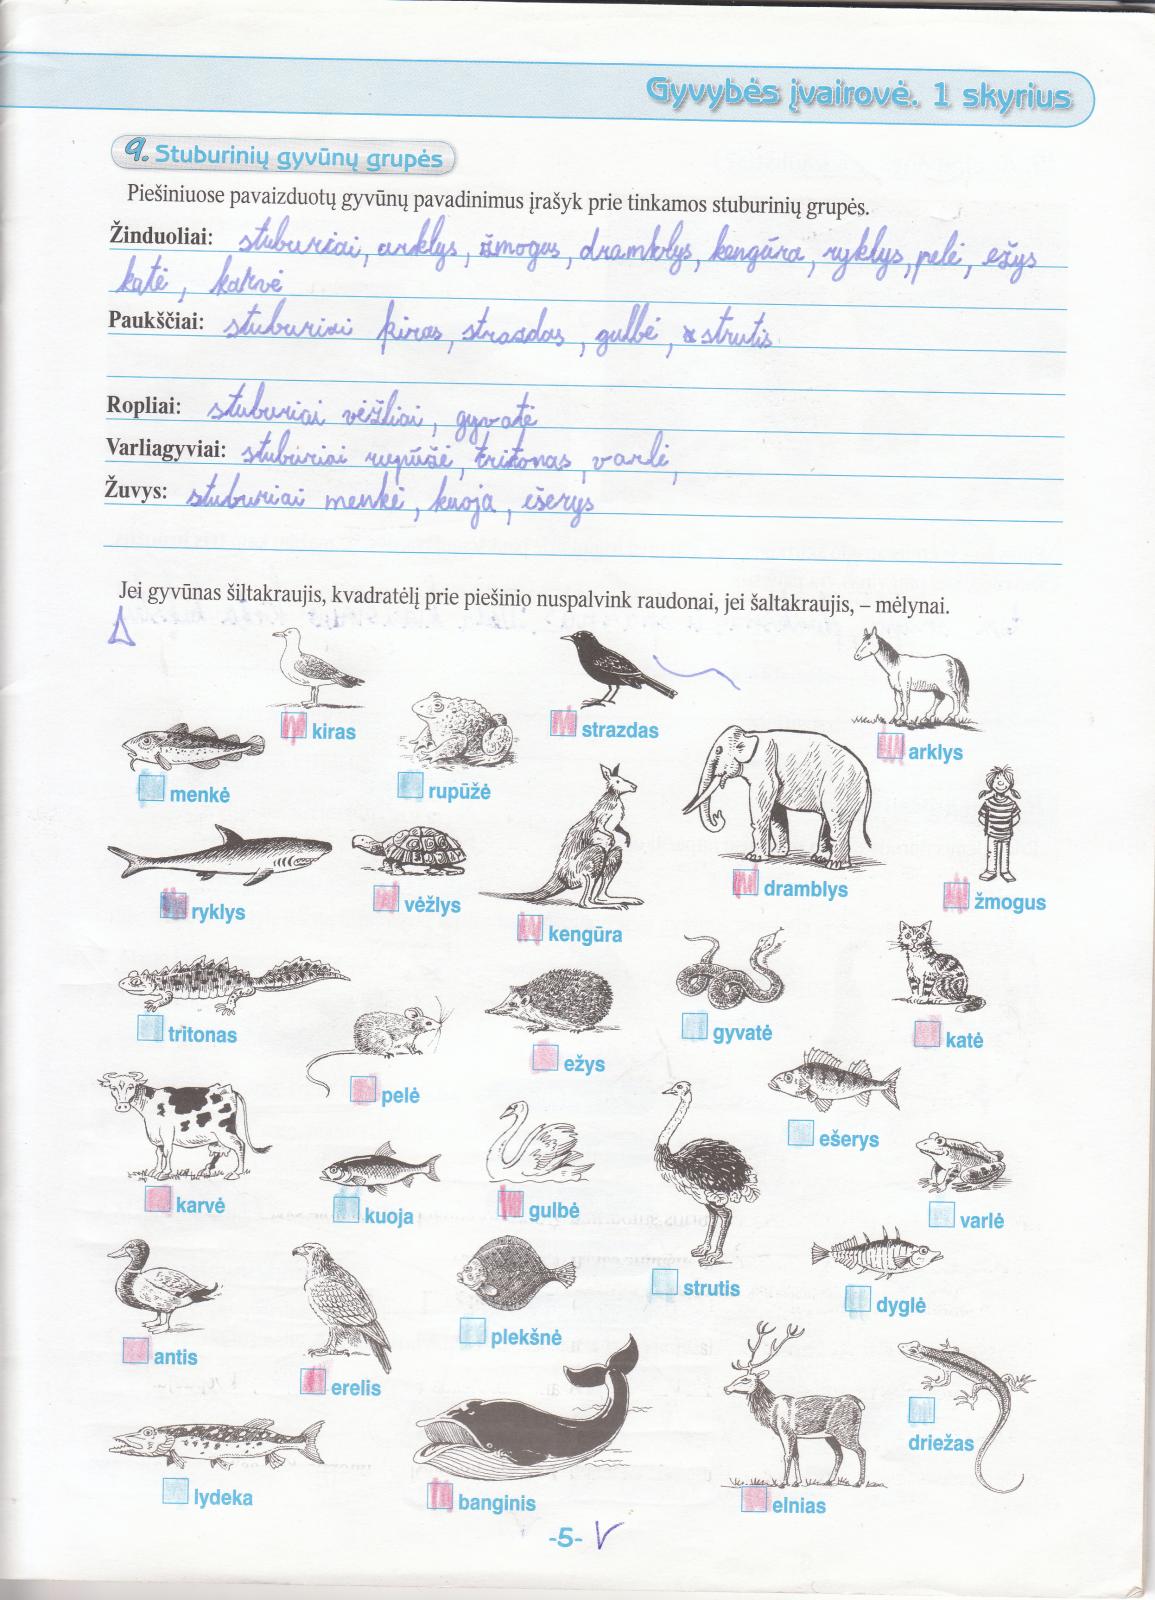 Gyvybės įvairovė. 1 skyrius
9. Stuburinių gyvūnų grupės
Piešiniuose pavaizduotų gyvūnų pavadinimus įrašyk prie tinkamos stuburinių grupės.
Žinduoliai: stuburiai, arklys, žmogus, dramblys, kengūra, ryklys, pelė, ežys
katė, karvė
Paukščiai: stuburiai kiras, strazdas, gulbė, strutis
Ropliai: stuburiai vėžliai, gyvatė
Varliagyviai: stuburiai rupūžė, tritonas, varlė,
Žuvys: stuburiai menkė, kuoja, ešerys
Jei gyvūnas šiltakraujis, kvadratėlį prie piešinio nuspalvink raudonai, jei šaltakraujis, – mėlynai.
kiras
strazdas
arklys
menkė
rupūžė
dramblys
žmogus
ryklys
vėžlys
kengūra
tritonas
pelė
ežys
gyvatė
katė
karvė
kuoja
gulbė
ešerys
varlė
strutis
dyglė
antis
erelis
plekšnė
driežas
lydeka
banginis
elnias
-5- V